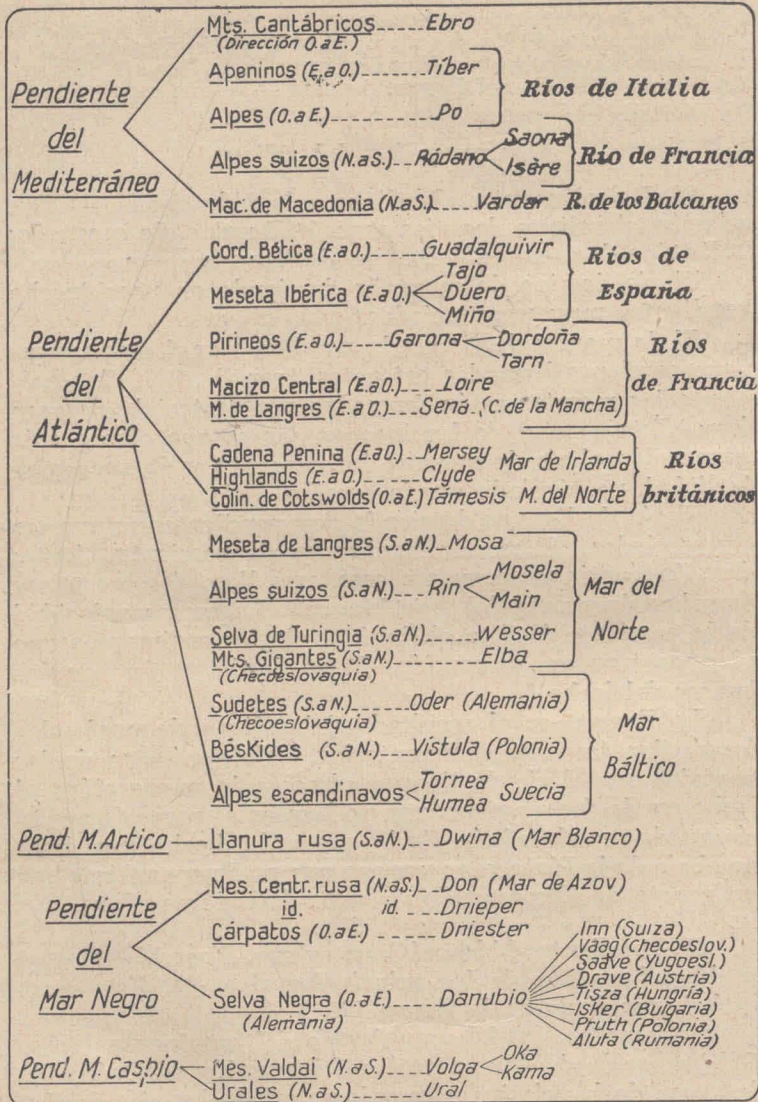 Pendiente
del
Mediterráneo
Mts. Cantábricos ----- Ebro
(Dirección O. a E.)
Apeninos (E. a O.) ----- Tíber
Alpes (O. a E.) --------- Po
Ríos de Italia
Alpes suizos (N. a S.) -- Ródano Saona
Isère
Río de Francia
Mac. de Macedonia (N. a S.) ---- Vardar R. de los Balcanes
Pendiente
del
Atlántico
Cord. Bética (E. a O.) ---- Guadalquivir
Meseta Ibérica (E. a O.) Tajo
Duero
Miño
Ríos de
España
Pirineos (E. a O.) ---- Garona Dordoña
Tarn
Macizo Central (E. a O.) --- Loire
M. de Langres (E. a O.) --- Sena (C. de la Mancha)
Ríos
de Francia
Cadena Penina (E. a O.) -- Mersey Mar de Irlanda
Highlands (E. a O.) ----- Clyde
Colin. de Cotswolds (O. a E.) Támesis M. del Norte
Ríos
británicos
Meseta de Langres (S. a N.) -- Mosa
Alpes suizos (S. a N.) --- Rin Mosela
Main
Selva de Turingia (S. a N.) ------ Wesser
Mts. Gigantes (S. a N.) -------- Elba
(Checoeslovaquia)
Mar del
Norte
Sudetes (S. a N.) ----- Oder (Alemania)
(Checoeslovaquia)
BésKides (S. a N.) ---- Vístula (Polonia)
Alpes escandinavos Tornea
Humea Suecia
Mar
Báltico
Pend. M. Artico Llanura rusa (S. a N.) -- Dwina (Mar Blanco)
Pendiente
del
Mar Negro
Mes. Centr. rusa (N. a S.) -- Don (Mar de Azov)
id. id. ---- Dnieper
Cárpatos (O. a E.) ------ Dniester
Selva Negra (O. a E.) ---- Danubio
(Alemania)
Inn (Suiza)
Vaag (Checoeslov.)
Saave (Yugoesl.)
Drave (Austria)
Tisza (Hungría)
IsKer (Bulgaria)
Pruth (Polonia)
Aluta (Rumania)
Pend. M. Caspio Mes. Valdai (N. a S.) ---- Volga OKa
Kama
Urales (N. a S.) ------ Ural